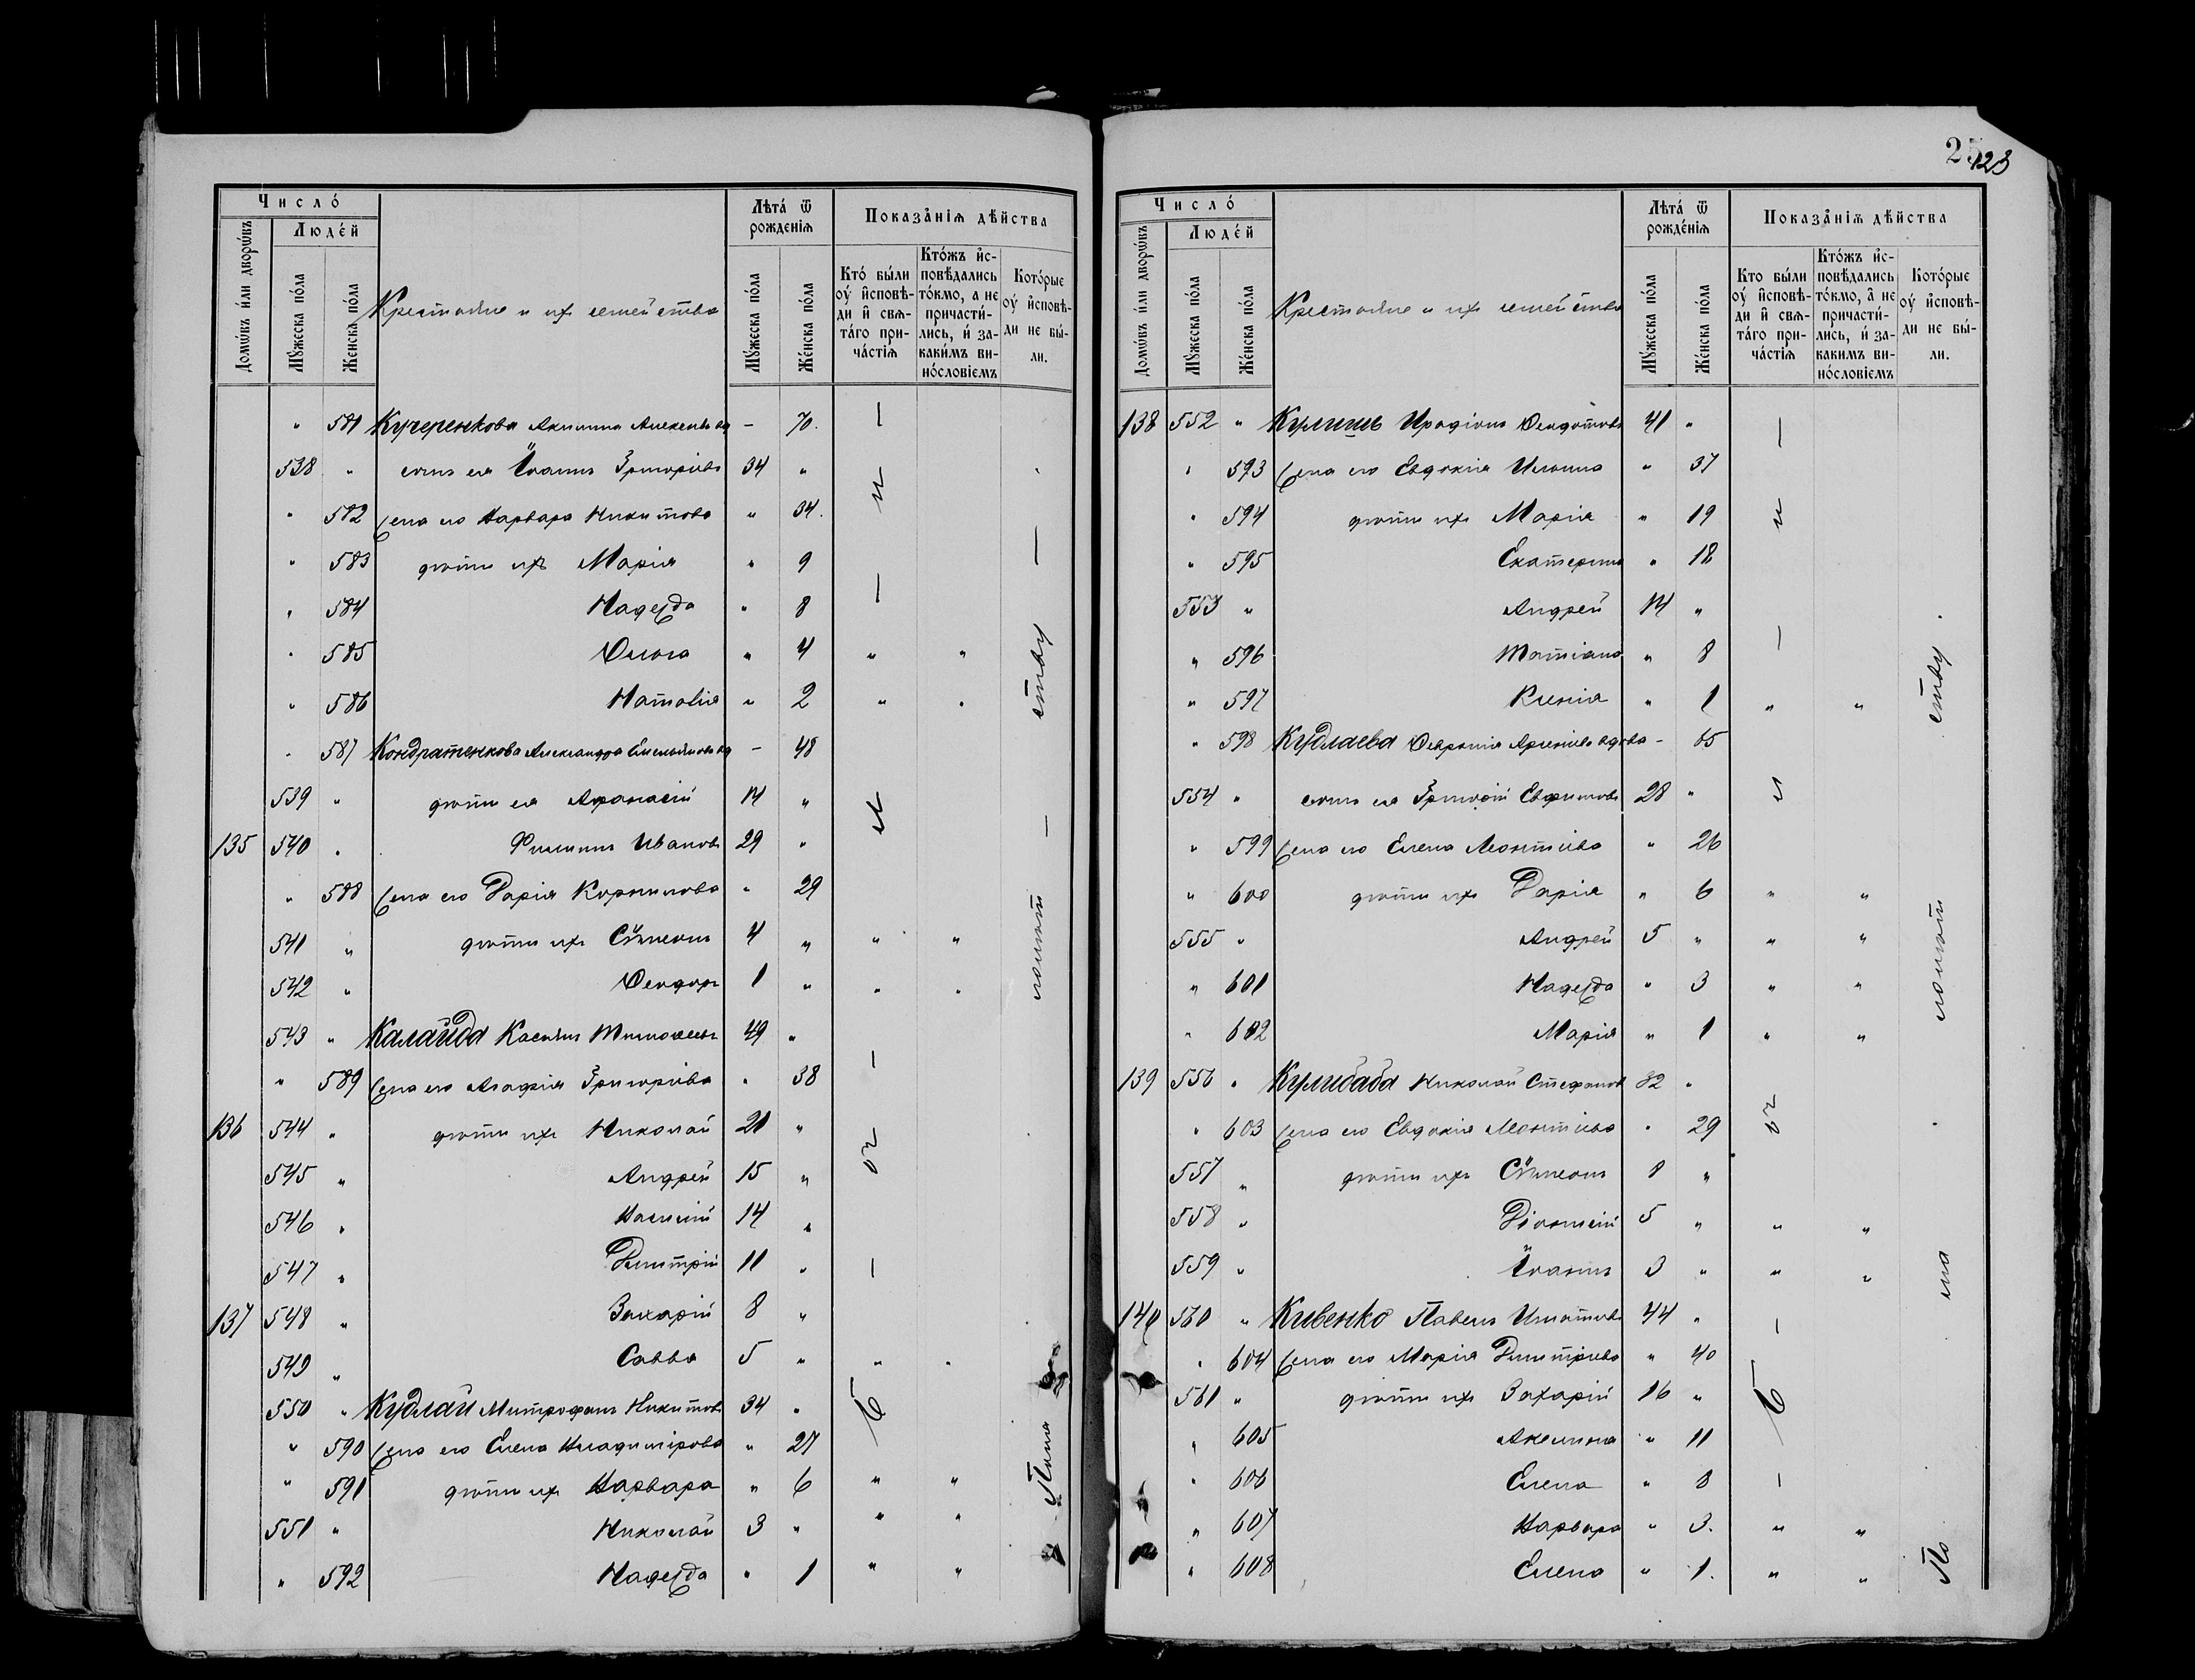 25 123
Число́
Людéй
Домѡ́въ и́ли дворѡ́въ
Мꙋ́жеска по́ла
Же́нска по́ла
Крестьяне и ихъ семейства
Лѣта́ ѿ рожде́нїѧ
Мꙋ́жеска по́ла
Же́нска по́ла
Показа́нїѧ дѣ́йства
Кто́ бы́ли оу҆ и҆сповѣ-
ди и҆ свѧ-
та́го при-
ча́стїѧ
Кто́жъ и҆с-
повѣ́дались
то́кмо, а не
причасти́-
лись, и҆ за-
каки́мъ ви-
носло́вїемъ
Кото́рые
оу҆ и҆сповѣ́-
ди не бы́-
ли.
" 581 Кучеренкова Акилина Алексеева вд — 70.
538 " сынъ ея Іоаннъ Григоріевъ 34 "
" 582 жена его Варвара Никитова " 34.
" 583 дѣти ихъ Марія " 9
" 584 Надежда " 8
" 585 Ольга " 4 " "
" 586 Наталія " 2 " "
" 587 Кондратенкова Александра Емельянова вд — 48
539 " дѣти ея Афанасій 14 "
135 540 " Филиппъ Ивановъ 29 "
" 588 жена его Дарія Корнилова " 29
541 " дѣти ихъ Сѷмеонъ 4 " " "
542 " Феодоръ 1 " " "
543 " Калайда Касьянъ Тимофеевъ 49 "
" 589 жена его Агафія Григоріева " 38
136 544 " дѣти ихъ Николай 21 "
545 " Андрей 15 "
546 " Василій 14 "
547 " Димитрій 11 "
137 548 " Захарій 8 "
549 " Савва 5 " " "
550 " Кудлай Митрофанъ Никитовъ 34 "
" 590 жена его Елена Владимірова " 27
" 591 дѣти ихъ Варвара " 6 " "
551 " Николай 3 " " "
" 592 Надежда " 1 " "
Число́
Людéй
Домѡ́въ и́ли дворѡ́въ
Мꙋ́жеска по́ла
Же́нска по́ла
Крестьяне и ихъ семейства
Лѣта́ ѿ рожде́нїѧ
Мꙋ́жеска по́ла
Же́нска по́ла
Показа́нїѧ дѣ́йства
Кто бы́ли оу҆ и҆сповѣ-
ди и҆ свѧ-
та́го при-
ча́стїѧ
Кто́жъ и҆с-
повѣ́дались
то́кмо, а҆ не
причасти́-
лись, и҆ за-
каки́мъ ви-
носло́вїемъ
Кото́рые
оу҆ и҆сповѣ́-
ди не бы́-
ли.
138 552 " Кулишъ Иродіонъ Феодотовъ 41 "
" 593 жена его Евдокія " 37
" 594 дѣти ихъ Марія " 19
" 595 Екатерина " 18
553 " Андрей 14 "
" 596 Татіана " 8
" 597 Ксенія " 1 " "
" 598 Кудлаева Февронія Арсеніева вдова — 65
554 " сынъ ея Григорій Евфимовъ 28 "
" 599 жена его Елена Леонтіева " 26
" 600 дѣти ихъ Дарія " 6 " "
555 " Андрей 5 " " "
" 601 Надежда " 3 " "
" 602 Марія " 1 " "
139 556 " Кулибаба Николай Стефановъ 32 "
" 603 жена его Евдокія Леонтіева " 29
557 " дѣти ихъ Сѷмеонъ 8 "
558 " Діонисій 5 " " "
559 " Іоаннъ 3 " " "
140 560 " Кивенко Павелъ Игнатовъ 44 "
" 604 жена его Марія Димитріева " 40
561 " дѣти ихъ Захарій 16 "
" 605 Акилина " 11
" 606 Елена " 8
" 607 Варвара " 3. " "
" 608 Елена " 1. " "